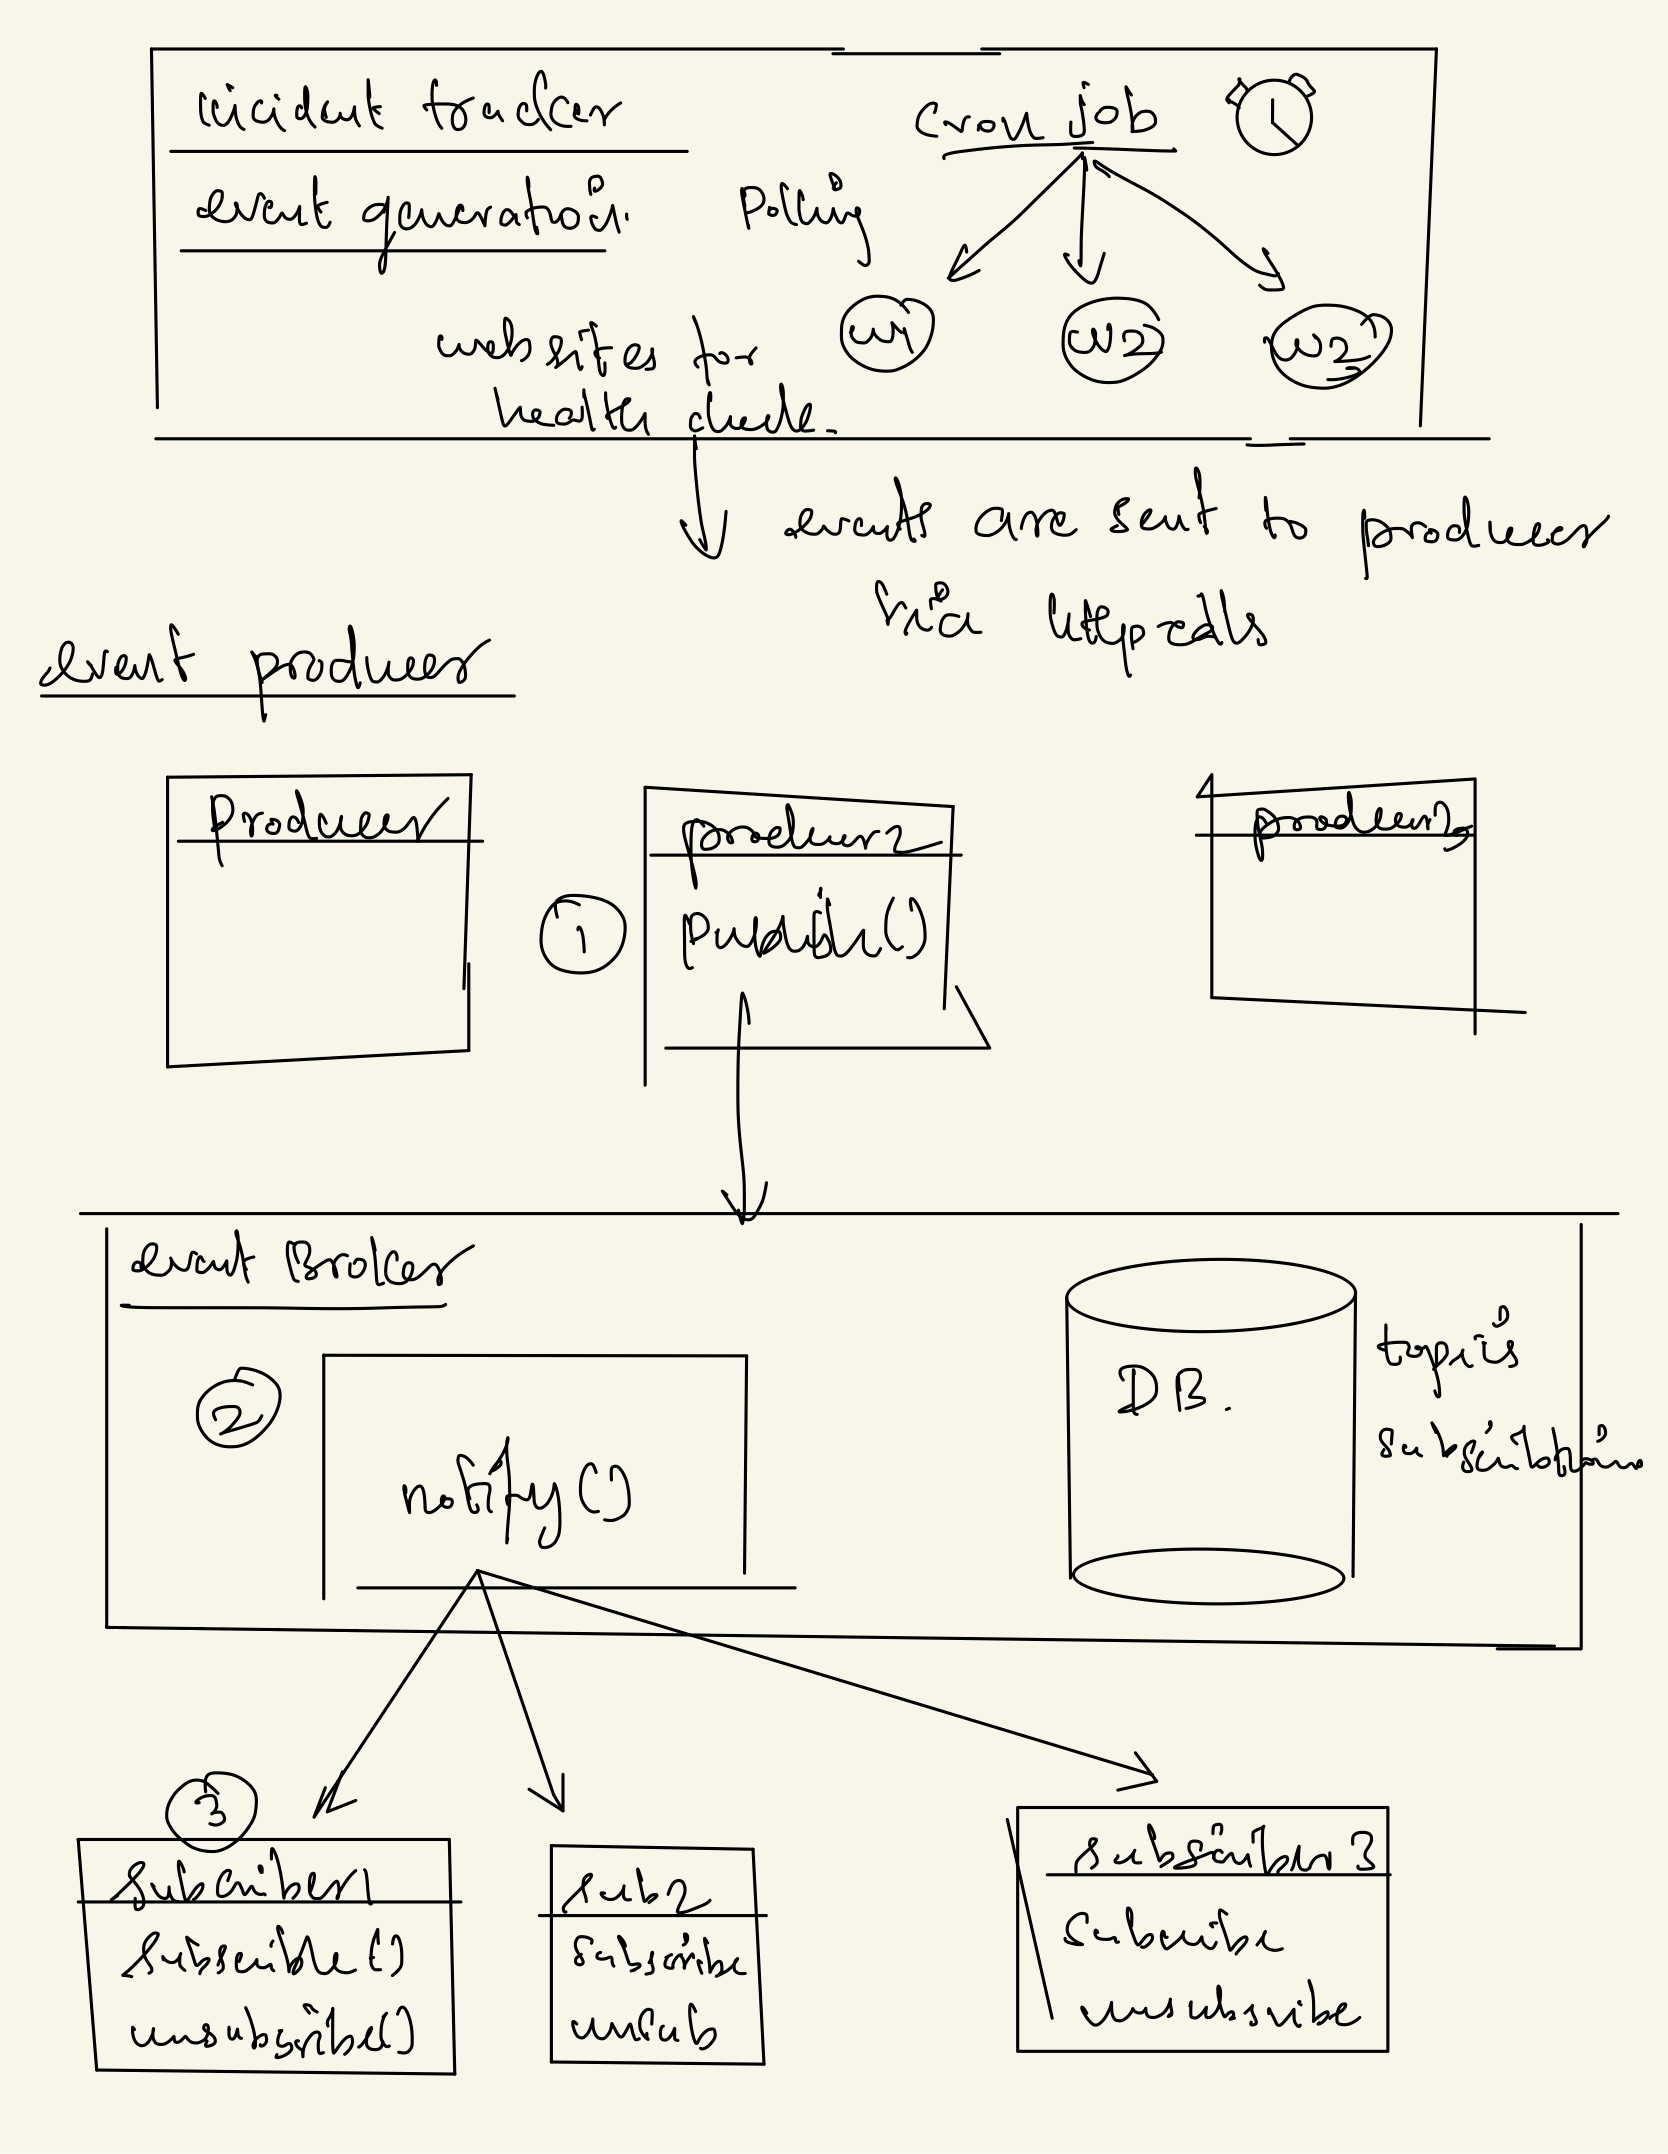 incident tracker
event generation.
cron job
Polling
websites for
health check.
W1
W2
events are sent to producer
via http calls
event producer
Producer
producer2
producer3
1
publish()
event Broker
2
notify()
DB.
topics
3
Subcriber1
Subscrible()
unsubscribe()
sub2
subscribe
unsub
subscriber 3
Subcribe
unsubscribe